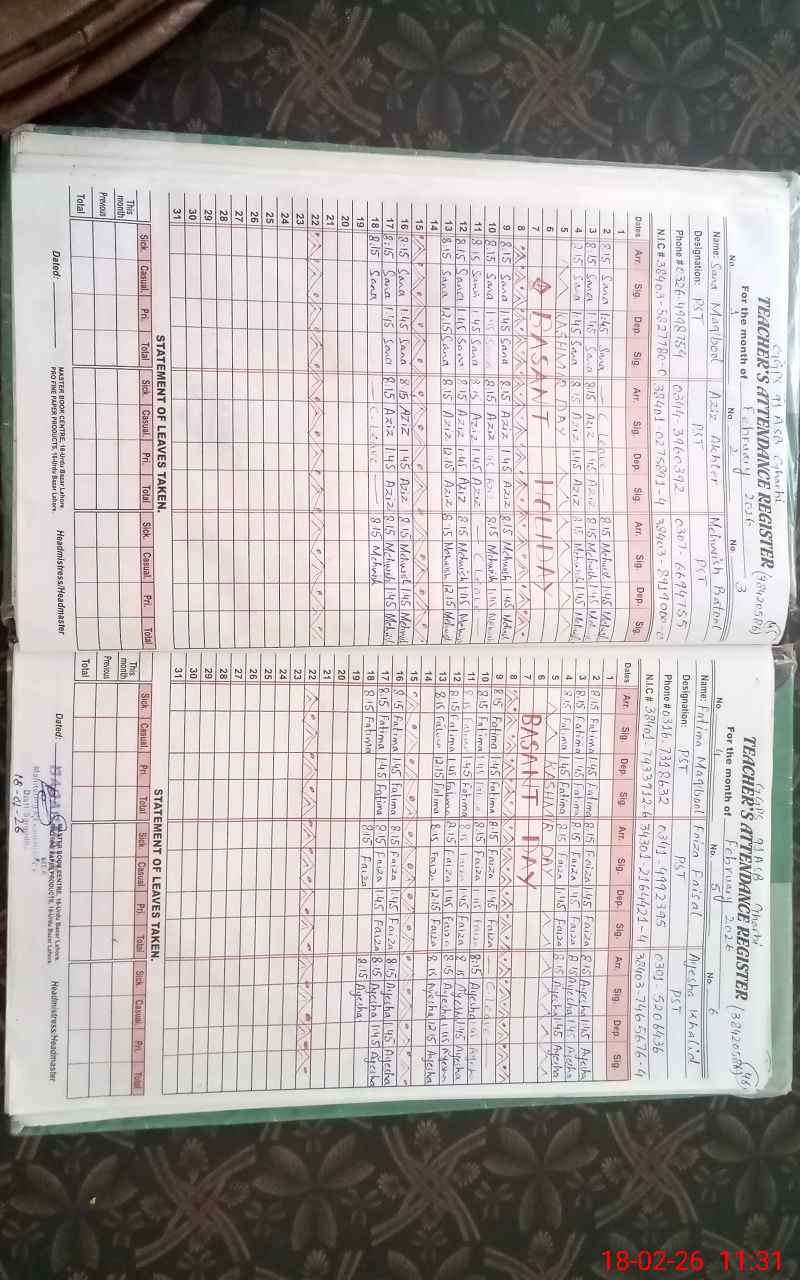 GGPS 91 ASB Gharbi
TEACHER'S ATTENDANCE REGISTER (38420586)
For the month of February 2026
No. 1 No. 2 No. 3
Name: Sana Maqbool Aziz Akhter Mehwish Batool
Designation: PST PST PST
Phone # 0326 4998759 0344 3960392 0307-6694755
N.I.C #
Dates Arr. Sig. Dep. Sig. Arr. Sig. Dep. Sig. Arr. Sig. Dep. Sig.
1
2 8:15 Sana 1:45 Sana — C. Leave — 8:15 Mehwish 1:45
3 8:15 Sana 1:45 Sana 8:15 Aziz 1:45 Aziz 8:15 Mehwish 1:45
4 8:15 Sana 1:45 Sana 8:15 Aziz 1:45 Aziz 8:15 Mehwish 1:45
5 KASHMIR DAY
6
7 BASANT HOLIDAY
8
9 8:15 Sana 1:45 Sana 8:15 Aziz 1:45 Aziz 8:15 Mehwish 1:45
10 8:15 Sana 1:45 8:15 Aziz 1:45 Aziz 8:15 Mehwish
11 8:15 Sana 1:45 Sana 8:15 Aziz 1:45 Aziz — C Leave —
12 8:15 Sana 1:45 Sana 8:15 Aziz 1:45 Aziz 8:15 Mehwish
13 8:15 Sana 12:15 Sana 8:15 Aziz 12:15 Aziz 8:15 Mehwish 12:15
14
15
16 8:15 Sana 1:45 Sana 8:15 Aziz 1:45 Aziz 8:15 Mehwish 1:45
17 8:15 Sana 1:45 Sana 8:15 Aziz 1:45 Aziz 8:15 Mehwish 1:45
18 8:15 Sana — C. Leave — 8:15 Mehwish
19
20
21
22
23
24
25
26
27
28
29
30
31
STATEMENT OF LEAVES TAKEN.
Sick Casual. Pri. Total Sick Casual. Pri. Total Sick Casual. Pri. Total
This month
Previous
Total
MASTER BOOK CENTRE, 16-Urdu Bazar Lahore.
PRO FINE PAPER PRODUCTS, 16-Urdu Bazar Lahore.
Dated: Headmistress/Headmaster
GGPS 91 ASB Gharbi
TEACHER'S ATTENDANCE REGISTER (38420586)
For the month of February 2026
No. 4 No. 5 No. 6
Name: Fatima Maqbool Faiza Faisal Ayesha Khalid
Designation: PST PST PST
Phone # 0316 7318632 0341-4192395 0301-5206436
N.I.C # 38403-7465676-4
Dates Arr. Sig. Dep. Sig. Arr. Sig. Dep. Sig. Arr. Sig. Dep. Sig.
1
2 8:15 Fatima 1:45 Fatima 8:15 Faiza 1:45 Faiza 8:15 Ayesha 1:45 Ayesha
3 8:15 Fatima 1:45 Fatima 8:15 Faiza 1:45 Faiza 8:15 Ayesha 1:45 Ayesha
4 8:15 Fatima 1:45 Fatima 8:15 Faiza 1:45 Faiza 8:15 Ayesha 1:45 Ayesha
5 KASHMIR DAY
6
7 BASANT DAY
8
9 8:15 Fatima 1:45 Fatima 8:15 Faiza 1:45 Faiza
10 8:15 Fatima 1:45 8:15 Faiza 1:45 C Leave
11 8:15 Fatima 1:45 Fatima 8:15 Faiza 1:45 Faiza 8:15 Ayesha 1:45
12 8:15 Fatima 1:45 Fatima 8:15 Faiza 1:45 Faiza 8:15 Ayesha 1:45 Ayesha
13 8:15 Fatima 12:15 Fatima 8:15 Faiza 1:45 Faiza 8:15 Ayesha 1:45 Ayesha
14 8:15 Faiza 12:15 Faiza 8:15 Ayesha 12:15 Ayesha
15
16 8:15 Fatima 1:45 Fatima 8:15 Faiza 1:45 Faiza
17 8:15 Fatima 1:45 Fatima 8:15 Faiza 1:45 Faiza 8:15 Ayesha 1:45 Ayesha
18 8:15 Fatima 8:15 Faiza 8:15 Ayesha
19
20
21
22
23
24
25
26
27
28
29
30
31
STATEMENT OF LEAVES TAKEN.
Sick Casual. Pri. Total Sick Casual. Pri. Total Sick Casual. Pri. Total
This month
Previous
Total
MASTER BOOK CENTRE, 16-Urdu Bazar Lahore.
PRODUCTS, 16-Urdu Bazar Lahore.
Dated: Headmistress/Headmaster
18-02-26 11:31